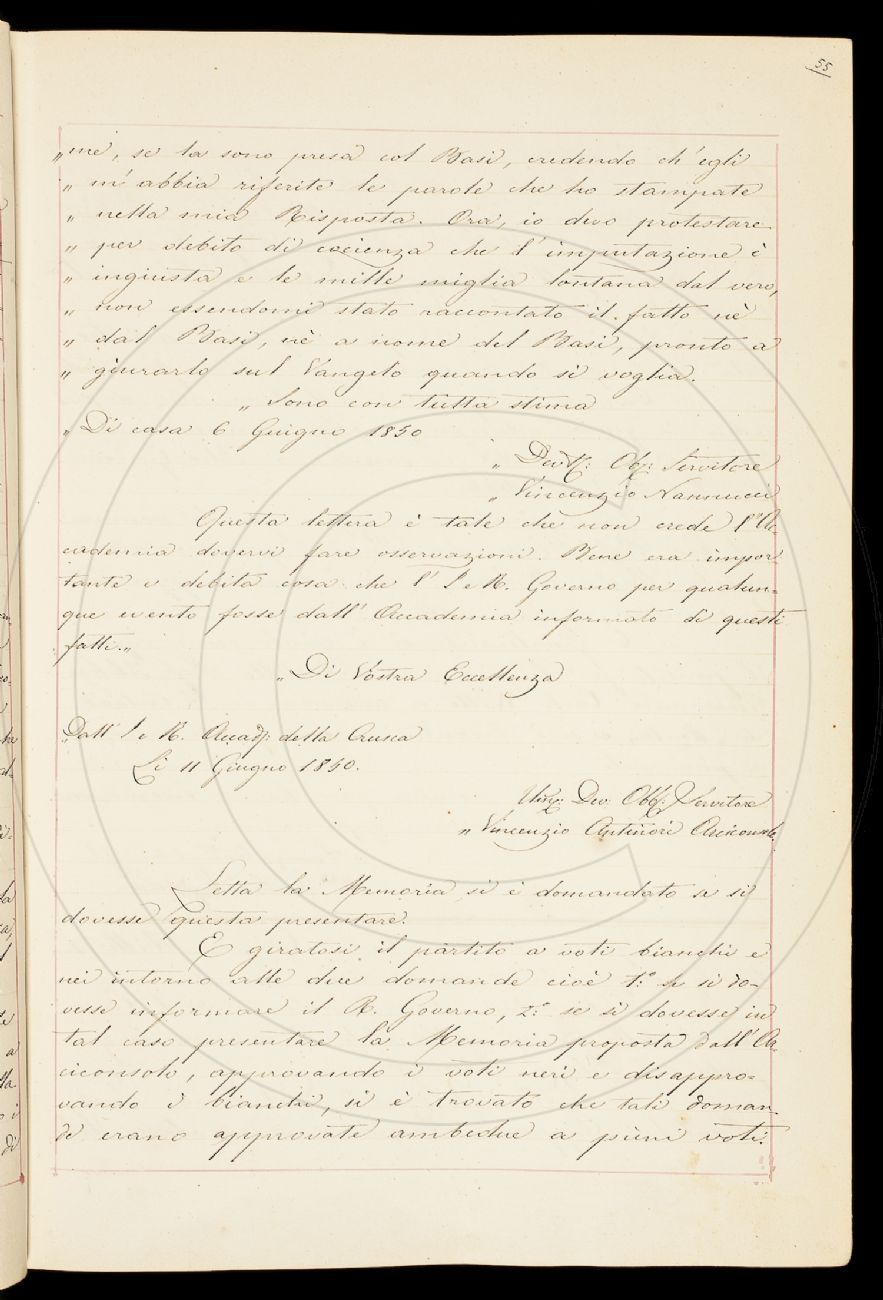 55
„ me, se la sono presa col Basi, credendo ch'egli
„ m'abbia riferite le parole che ho stampate
„ nella mia Risposta. Ora, io devo protestare
„ per debito di coscienza che l'imputazione è
„ ingiusta e le mille miglia lontana dal vero,
„ non essendomi stato raccontato il fatto nè
„ dal Basi, nè a nome del Basi, pronto a
„ giurarlo sul Vangelo quando si voglia.
„ Sono con tutta stima
„ Di casa 6 Giugno 1850
„ Dev: Obb: Servitore
„ Vincenzio Nannucci
Questa lettera è tale che non crede l'Ac-
cademia dovervi fare osservazioni. Bene era impor-
tante e debita cosa che l'I e R. Governo per qualun-
que evento fosse dall'Accademia informato di questi
fatti. „
„ Di Vostra Eccellenza
„ Dall'I e R. Accad: della Crusca
Li 11 Giugno 1850.
Um: Dev: Obb: Servitore
„ Vincenzio Antinori Arciconsolo
Letta la Memoria si è domandato se si
dovesse questa presentare.
E giratosi il partito a voti bianchi e
neri intorno alle due domande cioè 1.º se si do-
vesse informare il R. Governo, 2.º se si dovesse in
tal caso presentare la Memoria proposta dall'Ar-
ciconsolo, approvando i voti neri e disappro-
vando i bianchi, si è trovato che tali doman-
de erano approvate ambedue a pieni voti.